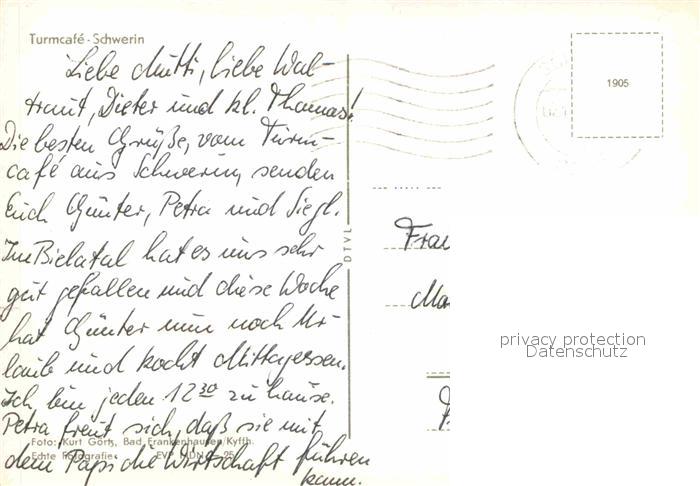 Turmcafé - Schwerin
Liebe Mutti, liebe Wal-
traut, Dieter und kl. Thomas!
Die besten Grüße, vom Turm-
café aus Schwerin, senden
Euch Günter, Petra und Siegl.
Im Bielatal hat es uns sehr
gut gefallen und diese Woche
hat Günter nun noch Ur-
laub und kocht Mittagessen.
Ich bin jeden 12 30 zu hause.
Petra freut sich, daß sie mit
dem Papi die Wirtschaft führen
kann.
Foto: Kurt Görts, Bad Frankenhausen/Kyffh.
Echte Fotografie EVP MDN -,25
DTVL
1905
Frau
privacy protection
Datenschutz